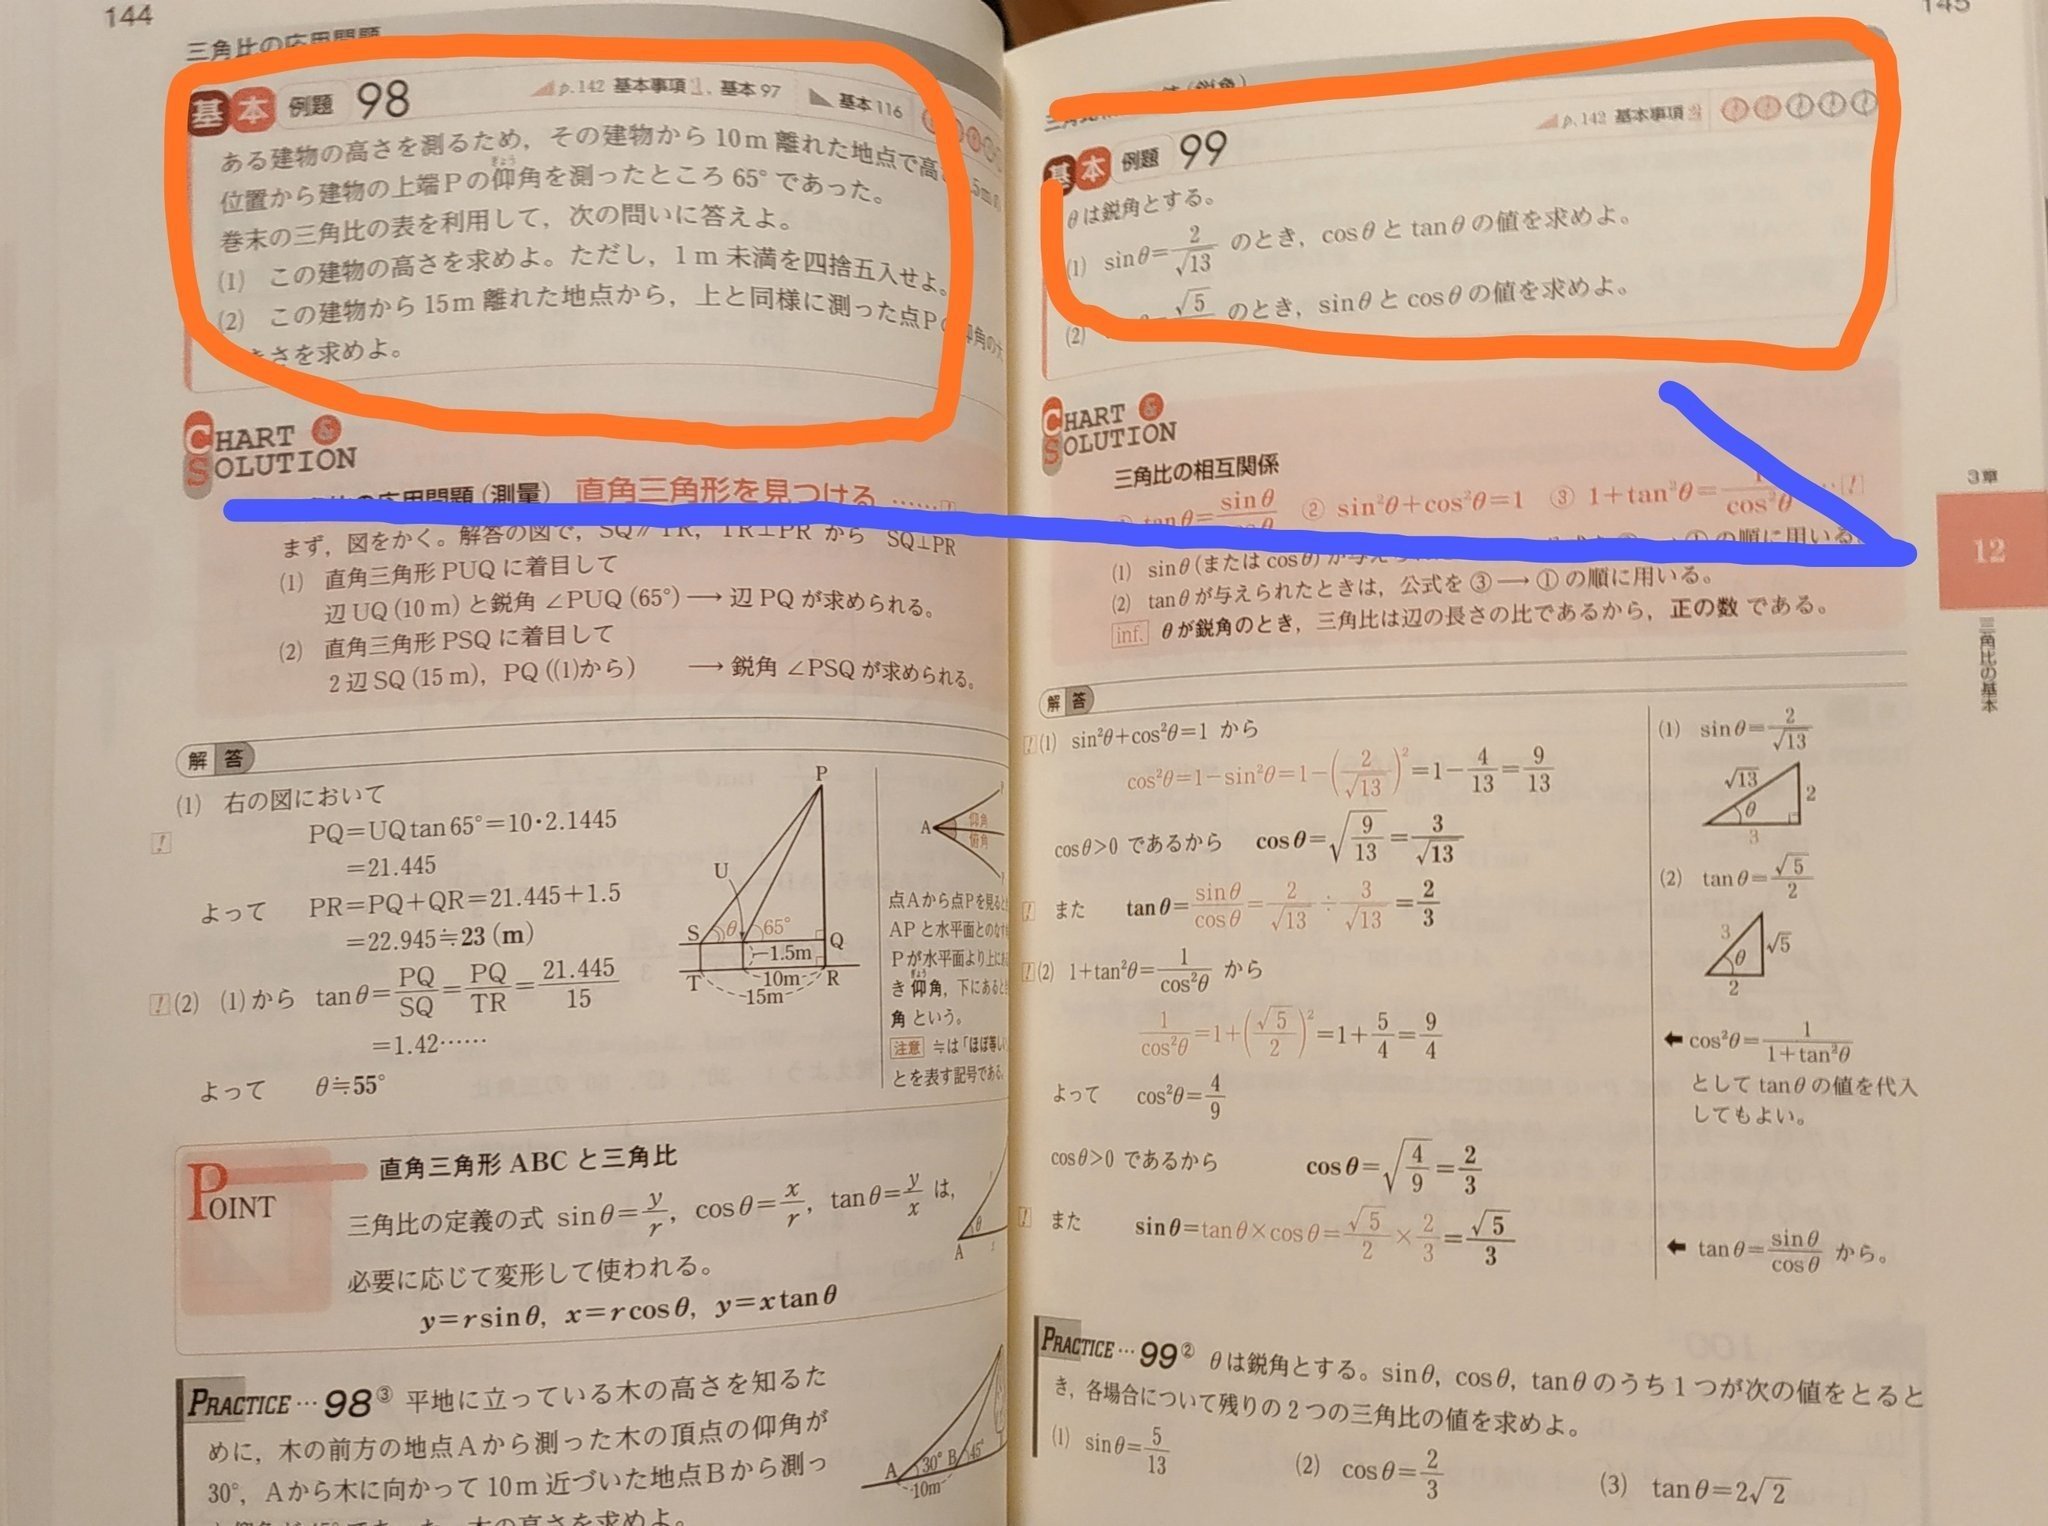 144
三角比の応用問題
基本 例題 98
p.142 基本事項 1, 基本97
基本116
ある建物の高さを測るため，その建物から10m離れた地点で高
位置から建物の上端Pの仰角を測ったところ65°であった。
ぎょう
巻末の三角比の表を利用して，次の問いに答えよ。
(1) この建物の高さを求めよ。ただし，1m未満を四捨五入せよ。
(2) この建物から15m離れた地点から，上と同様に測った点P
きさを求めよ。
CHART & SOLUTION
の応用問題(測量) 直角三角形を見つける ……!
まず，図をかく。解答の図で，SQ∥TR，TR⊥PR から SQ⊥PR
(1) 直角三角形PUQに着目して
辺UQ(10m)と鋭角∠PUQ(65°)→辺PQが求められる。
(2) 直角三角形PSQに着目して
2辺SQ(15m)，PQ((1)から) →鋭角∠PSQが求められる。
解答
(1) 右の図において
! PQ=UQtan65°=10・2.1445
=21.445
よって PR=PQ+QR=21.445+1.5
=22.945≒23(m)
!(2) (1)から tanθ=PQ/SQ=PQ/TR=21.445/15
=1.42……
よって θ≒55°
P
U
S θ 65° Q
1.5m
T 10m R
15m
A 仰角
俯角
点Aから点Pを見ると
APと水平面とのなす
Pが水平面より上にあ
ぎょう
き仰角，下にあると
角という。
注意 ≒は「ほぼ等しい
とを表す記号である。
POINT 直角三角形ABCと三角比
三角比の定義の式 sinθ=y/r，cosθ=x/r，tanθ=y/x は，
必要に応じて変形して使われる。
y=rsinθ，x=rcosθ，y=xtanθ
A θ
PRACTICE…98③ 平地に立っている木の高さを知るた
めに，木の前方の地点Aから測った木の頂点の仰角が
30°，Aから木に向かって10m近づいた地点Bから測っ
木の高さを求めよ。
A 30° B 45°
10m
145
基本 例題 99
p.142 基本事項
θは鋭角とする。
(1) sinθ=2/√13 のとき，cosθとtanθの値を求めよ。
(2) √5 のとき，sinθとcosθの値を求めよ。
CHART & SOLUTION
三角比の相互関係
① tanθ=sinθ/cosθ ② sin²θ+cos²θ=1 ③ 1+tan²θ=1/cos²θ ……!
(1) sinθ(またはcosθ)が与えられ の順に用いる。
(2) tanθが与えられたときは，公式を③→①の順に用いる。
inf. θが鋭角のとき，三角比は辺の長さの比であるから，正の数である。
3章
12
三角比の基本
解答
!(1) sin²θ+cos²θ=1 から
cos²θ=1−sin²θ=1−(2/√13)²=1−4/13=9/13
cosθ>0 であるから cosθ=√(9/13)=3/√13
! また tanθ=sinθ/cosθ=2/√13÷3/√13=2/3
!(2) 1+tan²θ=1/cos²θ から
1/cos²θ=1+(√5/2)²=1+5/4=9/4
よって cos²θ=4/9
cosθ>0 であるから cosθ=√(4/9)=2/3
! また sinθ=tanθ×cosθ=√5/2×2/3=√5/3
(1) sinθ=2/√13
√13 2
θ
3
(2) tanθ=√5/2
3 √5
θ
2
← cos²θ=1/(1+tan²θ)
としてtanθの値を代入
してもよい。
← tanθ=sinθ/cosθ から。
PRACTICE…99② θは鋭角とする。sinθ，cosθ，tanθのうち1つが次の値をとると
き，各場合について残りの2つの三角比の値を求めよ。
(1) sinθ=5/13 (2) cosθ=2/3 (3) tanθ=2√2